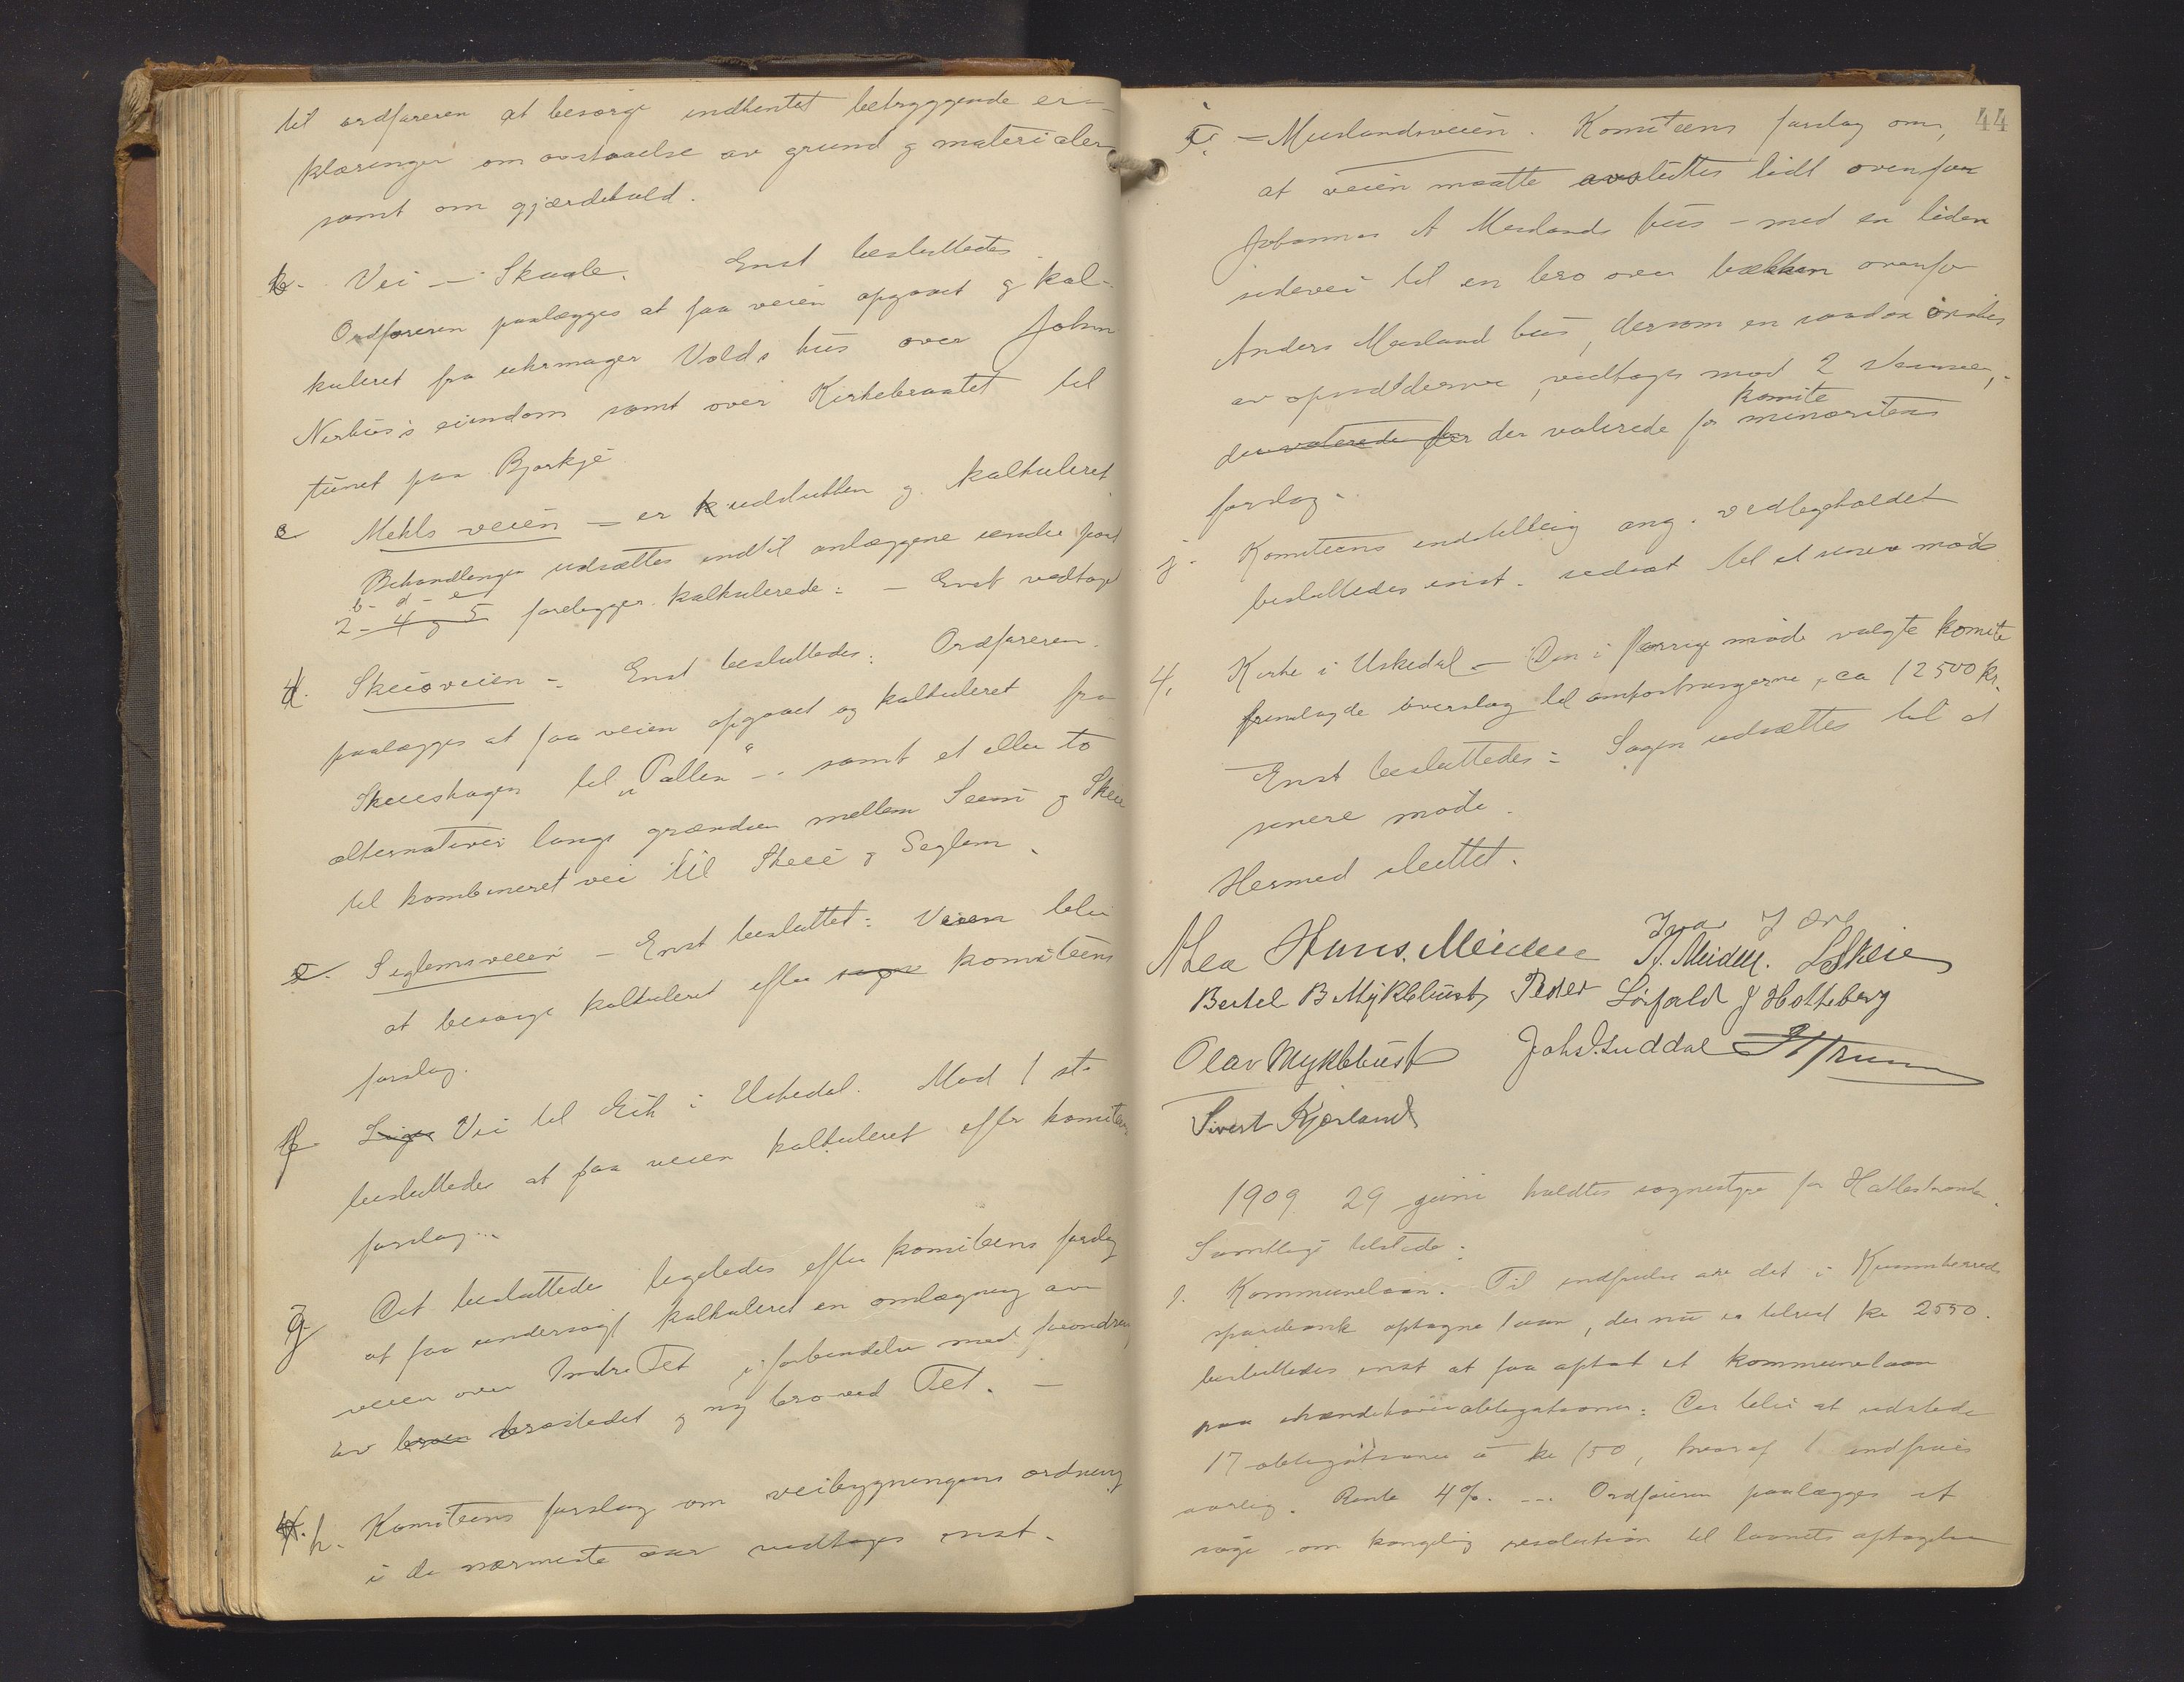 til ordføreren at besørge indhentet betryggende er-
klæringer om avstaaelse av grund g materialer
samt om gjærdehold.
b. Vei – Skaale. Enst besluttedes
Ordføreren paalægges at faa veien opgaaet g kal-
kuleret fra uhrmager Volds hus over John
Nerhus's eiendom samt over Kirkebraatet til
tunet paa Bjørkje
c Mehls veien – er udskutten g kalkuleret
Behandlingen udsættes indtil anlæggene under post
b- d- e
2- 4 g 5 foreligger kalkulerede: – Enst vedtaget
d. Skeisveien – Enst besluttedes: Ordføreren
paalægges at faa veien opgaaet og kalkuleret fra
Skeieshagen til „Pallen“ – samt et eller to
alternativer langs grændsen mellem Seim g Skeie
til kombineret vei til Skeie g Seglem.
e. Seglemsveien – Enst besluttet: Veien blir
at besørge kalkuleret efter komiteens
forslag.
f Vei til Eik i Uskedal. Mod 1 st.
besluttedes at faa veien kalkuleret efter komiteens
forslag..
g Det besluttedes ligeledes efter komiteens forslag
at faa undersøgt kalkuleret en omlægning av
veien over Indre Tet i forbindelse med forandring
av broen brostedet g ny bro ved Tet. –
h. Komiteens forslag om veibygningens ordning
i de nærmeste aar vedtages enst.
44
i. – Muslandsveien. Komiteens forslag om,
at veien maatte avsluttes lidt ovenfor
Johannes A Muslands hus – med en liden
sidevei til en bro over bækken ovenfor
Anders Musland hus, dersom en saadan ønskes
av opsidderne, vedtages mod 2 stemmer,
komite
der voterede for der voterede for minoritens
forslag.
j. Komiteens indstilling ang. vedligeholdet
besluttedes enst. udsat til et senere møde
4, Kirke i Uskedal – Den i forrige møde valgte komite
fremlagde overslag til omfostningerne, ca 12500 kr.
Enst besluttedes: Sagen udsættes til et
senere møde.
Hermed sluttet.
A Lea Hans. Meidell Ivar J
A. Meidell. L Skeie
Bertel B Myklebust Peder Løfald J Hatteberg
Olav Myklebust Johs Guddal
Sivert Kjærland
1909. 29 juni holdtes sognestyre for Hallestranda.
Samtlige tilstede:
1. Kommunelaan. Til indfrielse av det i Kvinnherreds
sparebank optagne laan, der nu er tilrest kr 2550.
besluttedes enst at faa optat et kommunelaan
paa ihændehaverobligationer: Der blir at udstede
17 obligationer à kr 150, hvoraf 1 indfries
aarlig. Rente 4%. – Ordføreren paalægges at
søge om kongelig resolution til laanets optagelse